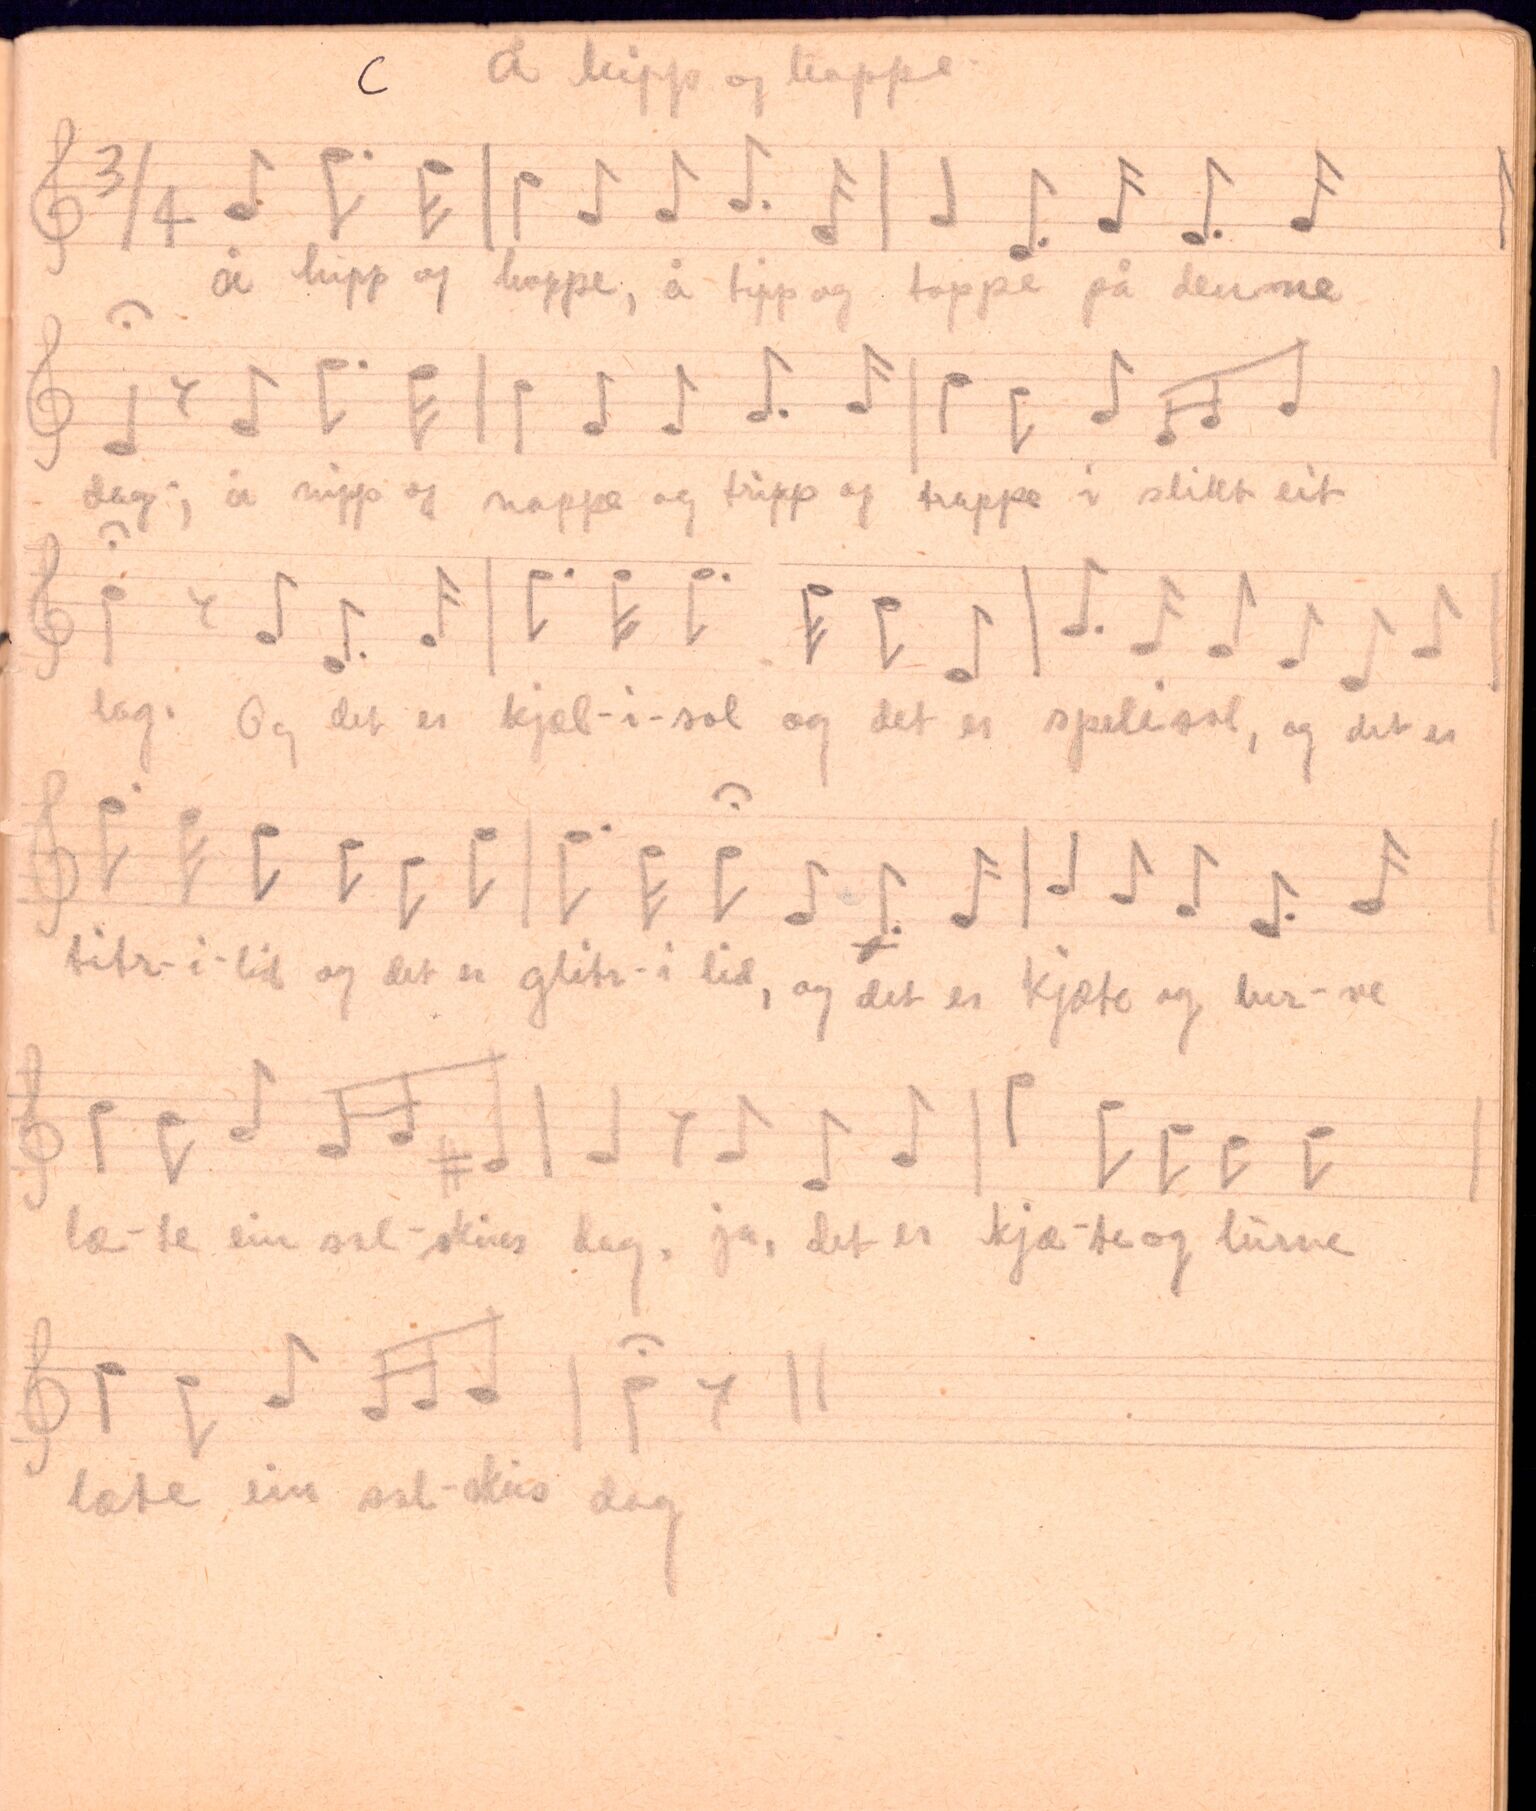 C Å hipp og hoppe.
3/4
å hipp og hoppe, å tipp og toppe på denne
dag;, å nipp og nappe og tripp og trappe i slikt eit
lag. Og det er kjæl-i-sol og det er spelisol, og det er
titr-i-lid og det er glitr-i lid, og det er kjæte og lur-ve
læ-te ein sol-skins dag. ja, det er kjæ-te og lurve
læte ein sol-skins dag